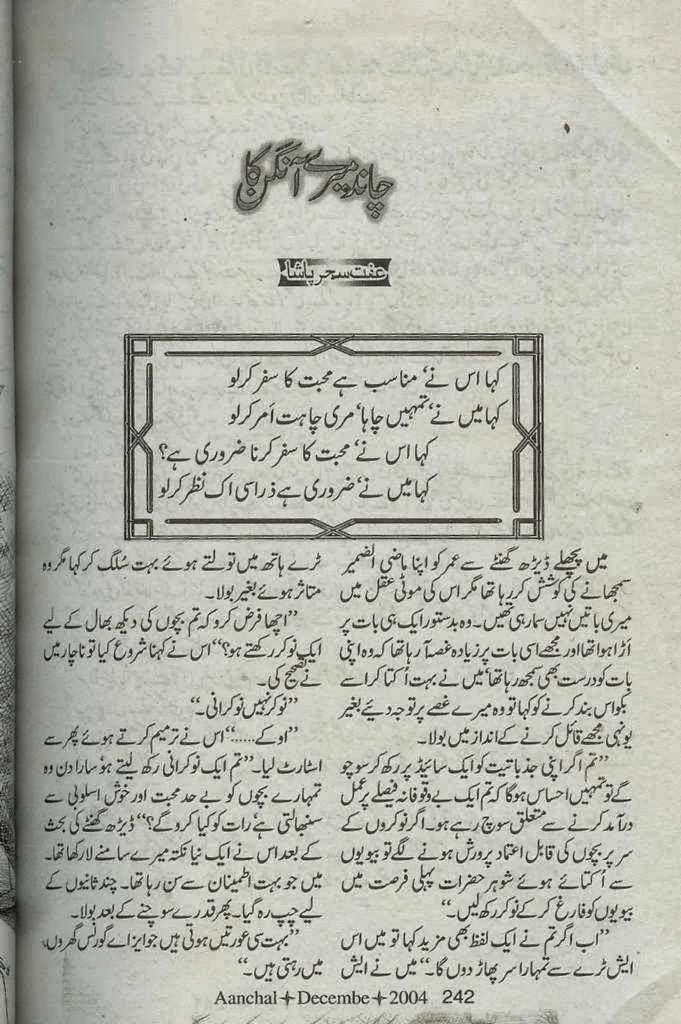 چاند میرے آنگن کا
عفت سحر پاشا
کہا اس نے، مناسب ہے محبت کا سفر کر لو
کہا میں نے، تمہیں چاہا، مری چاہت اَمر کر لو
کہا اس نے، محبت کا سفر کرنا ضروری ہے؟
کہا میں نے، ضروری ہے ذرا سی اک نظر کر لو
میں پچھلے ڈیڑھ گھنٹے سے عمر کو اپنا ماضی الضمیر
سمجھانے کی کوشش کر رہا تھا مگر اس کی موٹی عقل میں
میری باتیں نہیں سما رہی تھیں۔ وہ بدستور ایک ہی بات پر
اَڑا ہوا تھا اور مجھے اسی بات پر زیادہ غصہ آ رہا تھا کہ وہ اپنی
بات کو درست بھی سمجھ رہا تھا، میں نے بہت اُکتا کر اسے
بکواس بند کرنے کو کہا تو وہ میرے غصے پر توجہ دیئے بغیر
یونہی مجھے قائل کرنے کے انداز میں بولا۔
”تم اگر اپنی جذباتیت کو ایک سائیڈ پر رکھ کر سوچو
گے تو تمہیں احساس ہوگا کہ تم ایک بے وقوفانہ فیصلے پر عمل
درآمد کرنے سے متعلق سوچ رہے ہو۔ اگر نوکروں کے
سر پر بچوں کی قابل اعتماد پرورش ہونے لگے تو بیویوں
سے اُکتائے ہوئے شوہر حضرات پہلی فرصت میں
بیویوں کو فارغ کر کے نوکر رکھ لیں۔“
”اب اگر تم نے ایک لفظ بھی مزید کہا تو میں اس
ایش ٹرے سے تمہارا سر پھاڑ دوں گا۔“ میں نے ایش
ٹرے ہاتھ میں تولتے ہوئے بہت سُلگ کر کہا مگر وہ
متاثر ہوئے بغیر بولا۔
”اچھا فرض کرو کہ تم بچوں کی دیکھ بھال کے لیے
ایک نوکر رکھتے ہو؟“ اس نے کہنا شروع کیا تو ناچار میں
نے تصحیح کی۔
”نوکر نہیں نوکرانی۔“
”اوکے.....“ اس نے ترمیم کرتے ہوئے پھر سے
اسٹارٹ لیا۔ ”تم ایک نوکرانی رکھ لیتے ہو، سارا دن وہ
تمہارے بچوں کو بے حد محبت اور خوش اسلوبی سے
سنبھالتی ہے، رات کو کیا کرو گے؟“ ڈیڑھ گھنٹے کی بحث
کے بعد اس نے ایک نیا نکتہ میرے سامنے لا رکھا تھا۔
میں جو بہت اطمینان سے سن رہا تھا۔ چند ثانیوں کے
لیے چپ رہ گیا۔ پھر قدرے سوچنے کے بعد بولا۔
”بہت سی عورتیں ہوتی ہیں جو ایز اے گورنس گھروں،
میں رہتی ہیں۔“
Aanchal✦Decembe✦2004 242